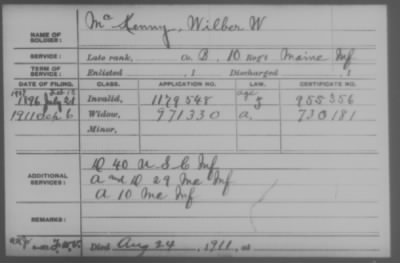 NAME OF SOLDIER: McKenny, Wilber W
SERVICE: Late rank, Co. B, 10 Reg't Maine Inf
TERM OF SERVICE: Enlisted , 1 Discharged , 1
DATE OF FILING. CLASS. APPLICATION NO. LAW. CERTIFICATE NO.
1896 July 21 Invalid, 1179548 age 955356
1911 6 Widow, 971330 a. 730181
Minor,
ADDITIONAL SERVICES:
D 40 U S C Inf
A and D 29 Me Inf
A 10 Me Inf
REMARKS:
Died Aug 24, 1911, at